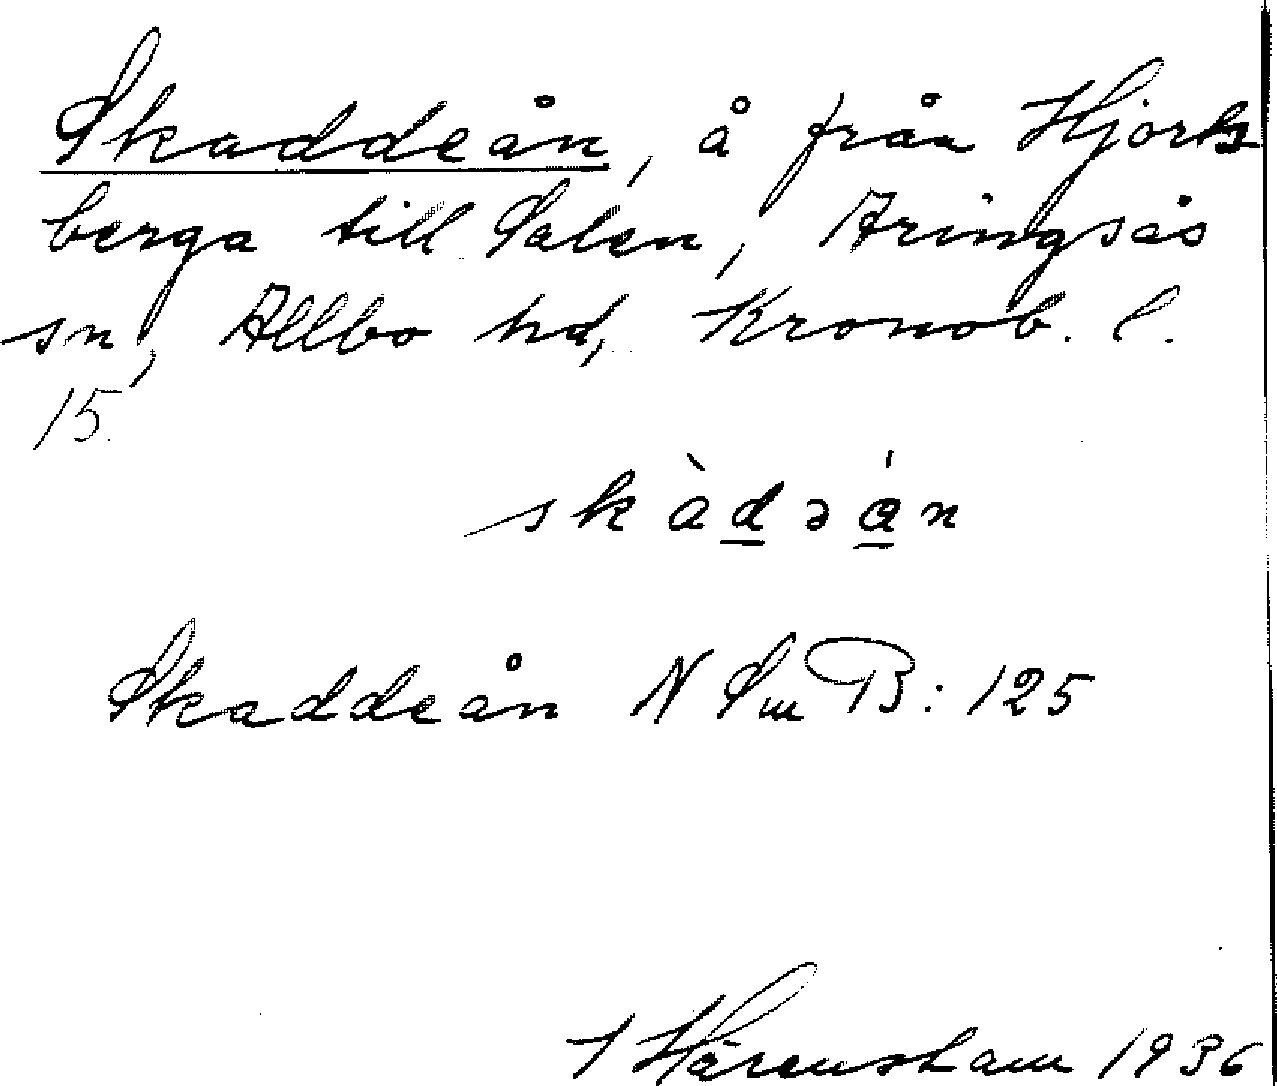 Skaddeån, å från Hjorts
berga till Salen, Aringsås
sn, Allbo hd, Kronob. l.
15.
skàdəán
Skaddeån N Sm B: 125
1936